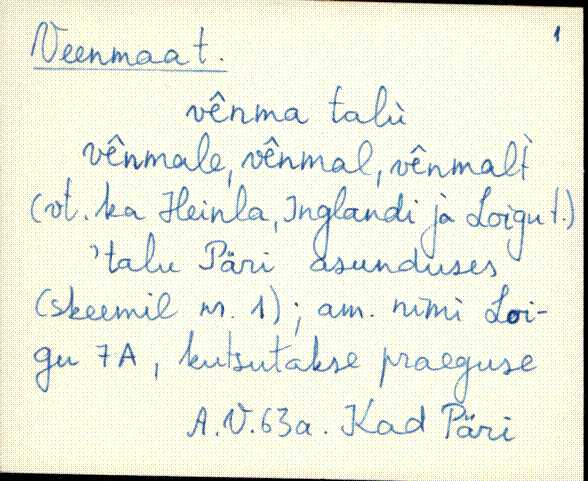 1
Veenmaa t.
vênma talù
vênmale, vênmal, vênmalt̀
(vt. ka Heinla, Inglandi jà Loigu t.)
'talu Päri asunduses
(skeemil nr. 1); am. nimi Loi-
gu 7A, kutsutakse praeguse
A.V.63a. Kad Päri